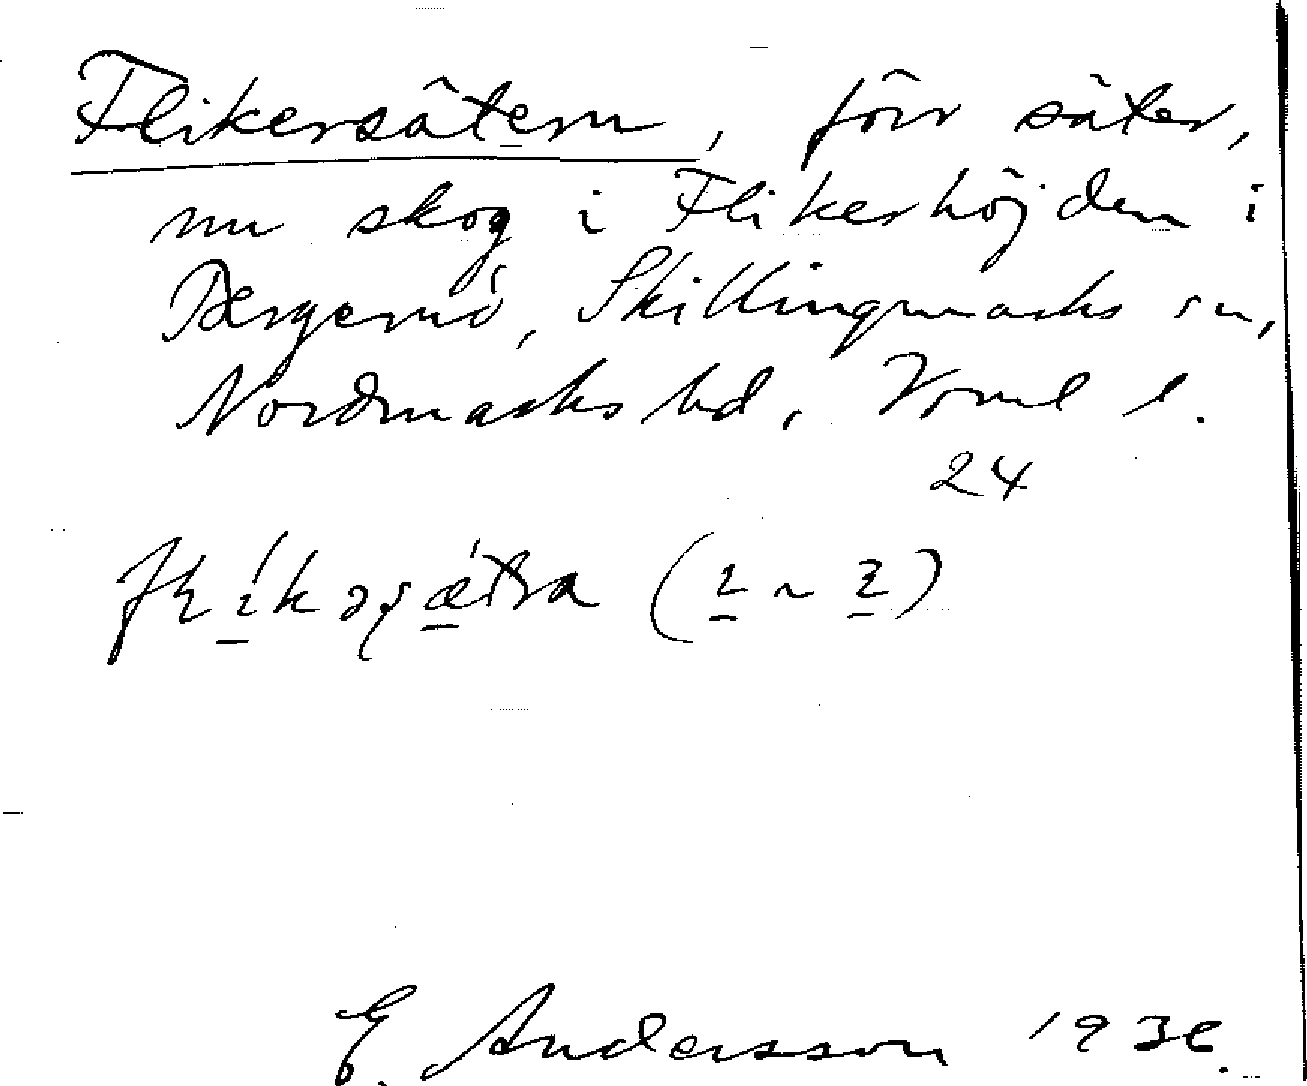 Flikersätern, förr säter,
nu skog i Flikerhöjden i
Skillingmarks sn,
Nordmarks hd, Vrml l.
24
(2 ~ 2)
E. Andersson 1936.